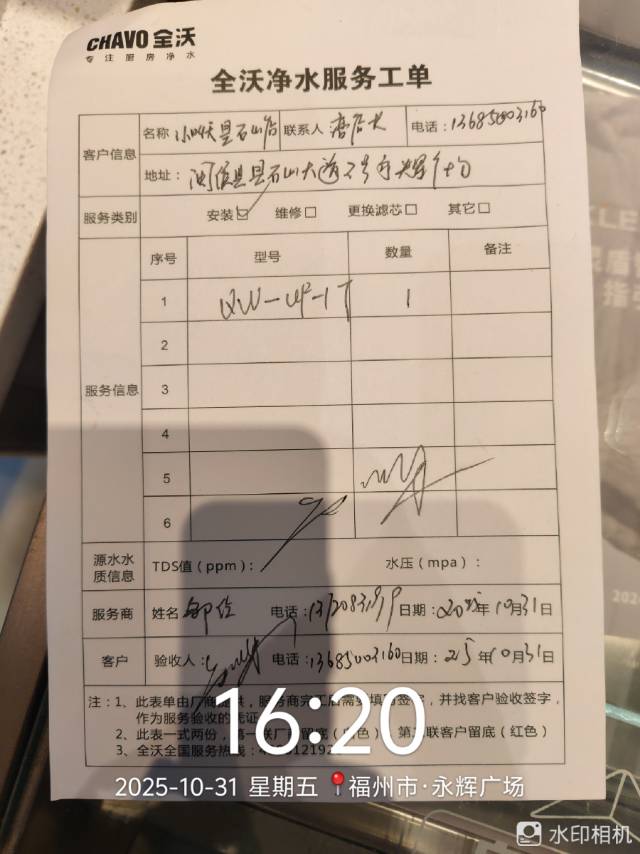 CHAVO 全沃
专注厨房净水
全沃净水服务工单
客户信息
名称 联系人 店长 电话：13685003160
地址：闽侯县昙石山大道
服务类别 安装☑ 维修□ 更换滤芯□ 其它□
服务信息
序号 型号 数量 备注
1 QW-UF-1T 1
2
3
4
5
6
源水水质信息
TDS值（ppm）： 水压（mpa）：
服务商 姓名 电话： 日期：2025年10月31日
客户 验收人： 电话：13685003160 日期：25年10月31日
注：1、此表单由厂商提供，服务商完工后需要填写签字，并找客户验收签字，
作为服务验收的凭证
2、此表一式两份，第一联厂商留底（白色） 第二联客户留底（红色）
3、全沃全国服务热线：
16:20
2025-10-31 星期五 福州市·永辉广场
水印相机